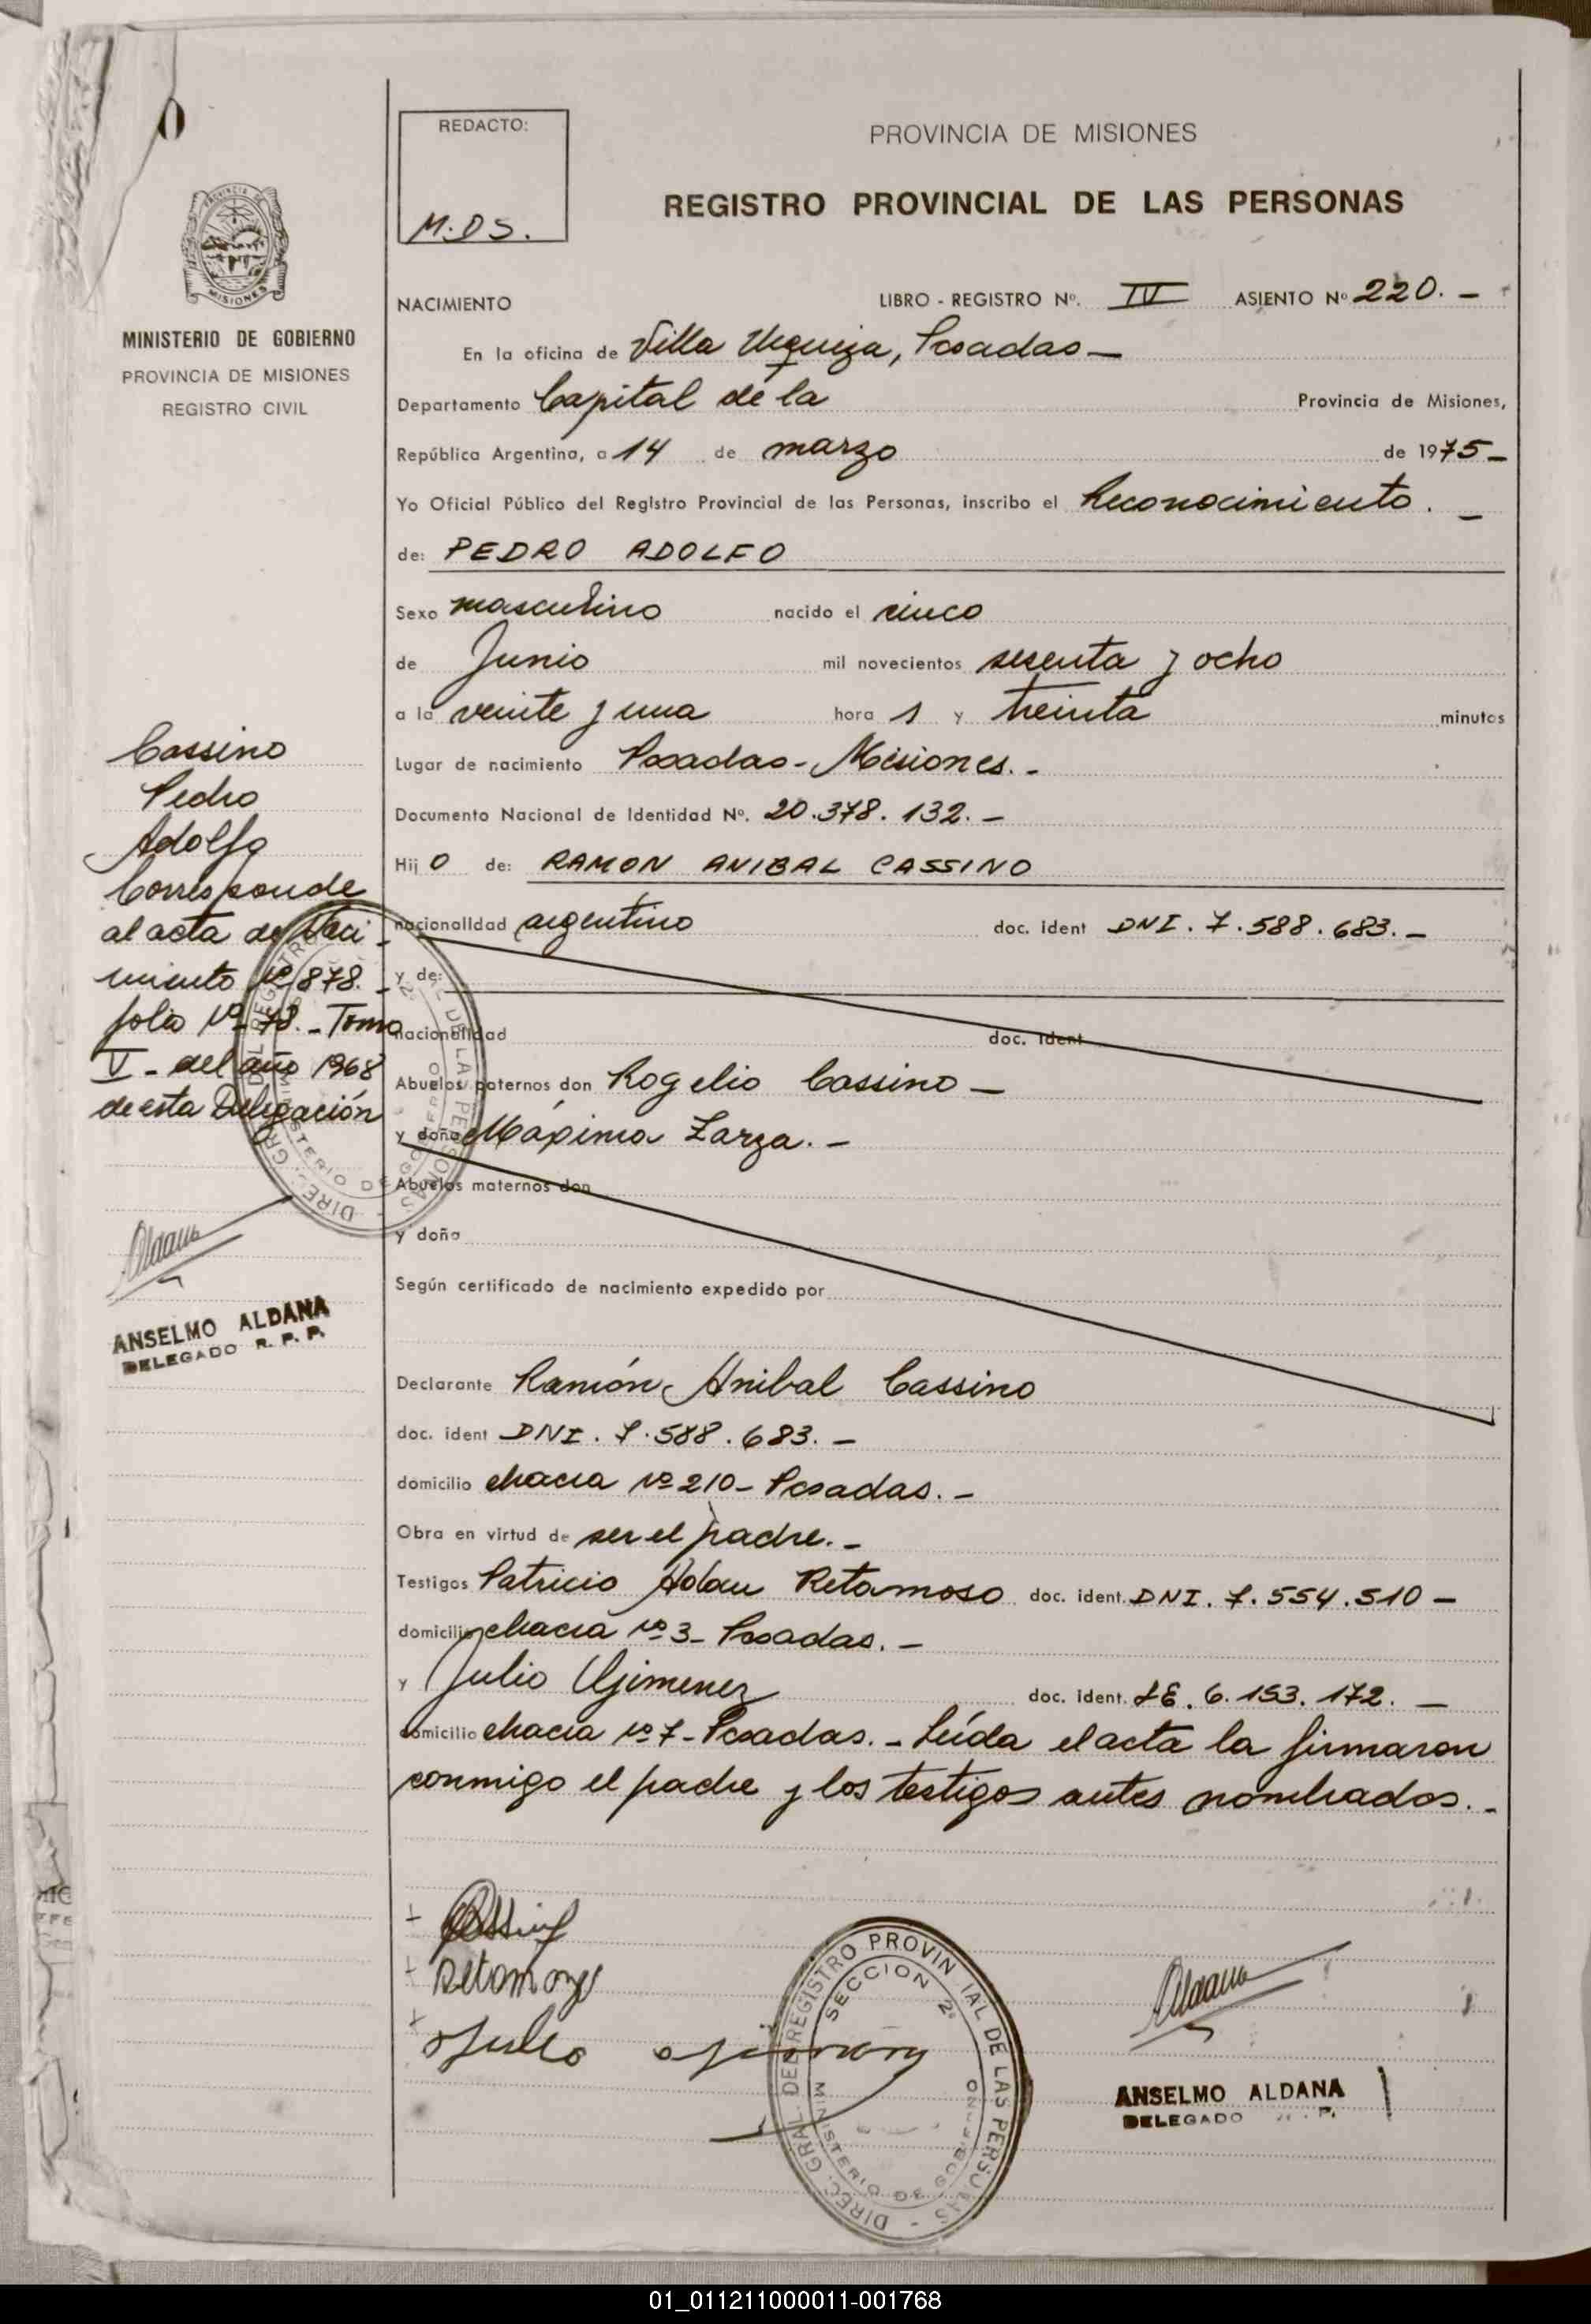 REDACTO:
M.DS.
PROVINCIA DE MISIONES
REGISTRO PROVINCIAL DE LAS PERSONAS
PROVINCIA DE
MISIONES
MINISTERIO DE GOBIERNO
PROVINCIA DE MISIONES
REGISTRO CIVIL
NACIMIENTO LIBRO - REGISTRO Nº. IV ASIENTO Nº 220. -
En la oficina de Villa Urquiza, Posadas -
Departamento Capital de la Provincia de Misiones,
República Argentina, a 14 de marzo de 1975 -
Yo Oficial Público del Registro Provincial de las Personas, inscribo el Reconocimiento. -
de: PEDRO ADOLFO
Sexo masculino nacido el cinco
de Junio mil novecientos sesenta y ocho
a la veinte y una hora s y treinta minutos
Lugar de nacimiento Posadas - Misiones. -
Documento Nacional de Identidad Nº. 20.378.132. -
Hij o de: RAMON ANIBAL CASSINO
nacionalidad argentino doc. ident DNI. 7.588.683. -
y de:
nacionalidad doc. ident
Abuelos paternos don Rogelio Cassino -
y doña Máxima Zarza. -
Abuelos maternos don
y doña
Según certificado de nacimiento expedido por
Declarante Ramón Anibal Cassino
doc. ident DNI. 7.588.683. -
domicilio chacra Nº 210 - Posadas. -
Obra en virtud de ser el padre. -
Testigos Patricio Adan Retamoso doc. ident. DNI. 7.554.510 -
domicilio chacra Nº 3 - Posadas. -
y Julio Gimenez doc. ident. LE. 6.153.172. -
domicilio chacra Nº 7 - Posadas. - Leída el acta la firmaron
conmigo el padre y los testigos antes nombrados. -
Cassino
Pedro
Adolfo
Corresponde
al acta de Naci -
miento Nº 878. -
folio Nº 78. - Tomo
V - del año 1968
de esta Delegación
Aldana
ANSELMO ALDANA
DELEGADO R. P. P.
Cassino
Retamozo
Julio
DIREC. GRAL. DEL REGISTRO PROVINCIAL DE LAS PERSONAS -
SECCION 2ª
MINISTERIO DE GOBIERNO
Aldana
ANSELMO ALDANA
DELEGADO
01_011211000011-001768